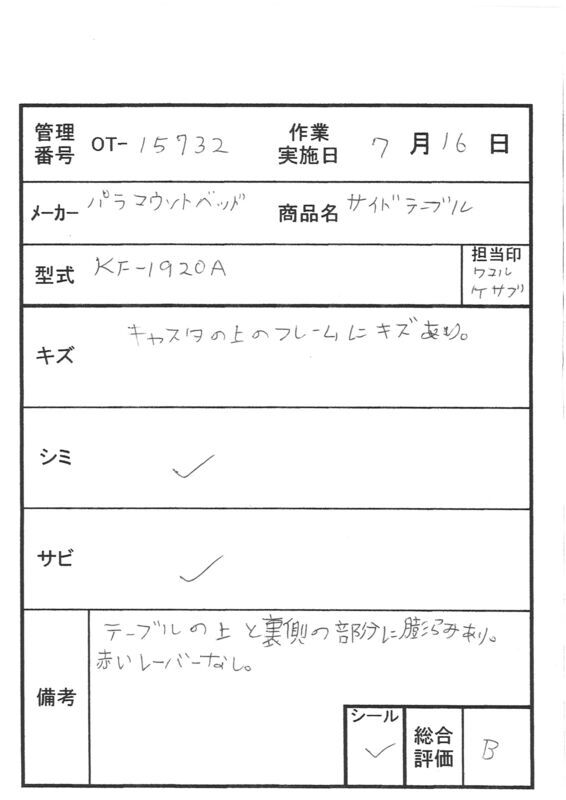 管理番号 OT-15732 作業実施日 7月16日
メーカー パラマウントベッド 商品名 サイドテーブル
型式 KF-1920A 担当印
ケサブリ
キズ キャスタの上のフレームにキズあり。
シミ ✓
サビ ✓
備考 テーブルの上と裏側の部分に膨らみあり。
赤いレーバーなし。
シール ✓ 総合評価 B